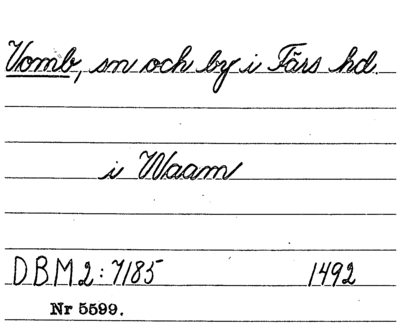 Vomb, sn och by i Färs hd.
i Waam
DBM 2:7185 1492
Nr 5599.